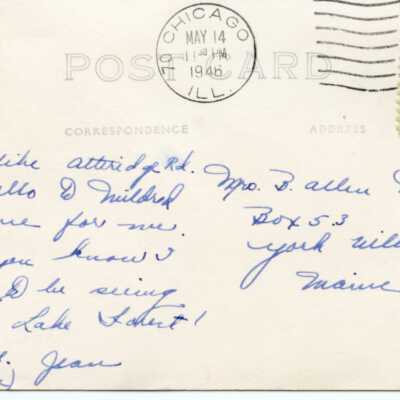 CHICAGO
20
MAY 14
11 30 PM
1946
ILL.
POST CARD
CORRESPONDENCE
ADDRESS
like atteridge Rd.
llo D Mildred
me for me.
you know I
D be seeing
Lake Forest!
Jean
Mrs. B. Allen
Box 53
York Vill
Maine